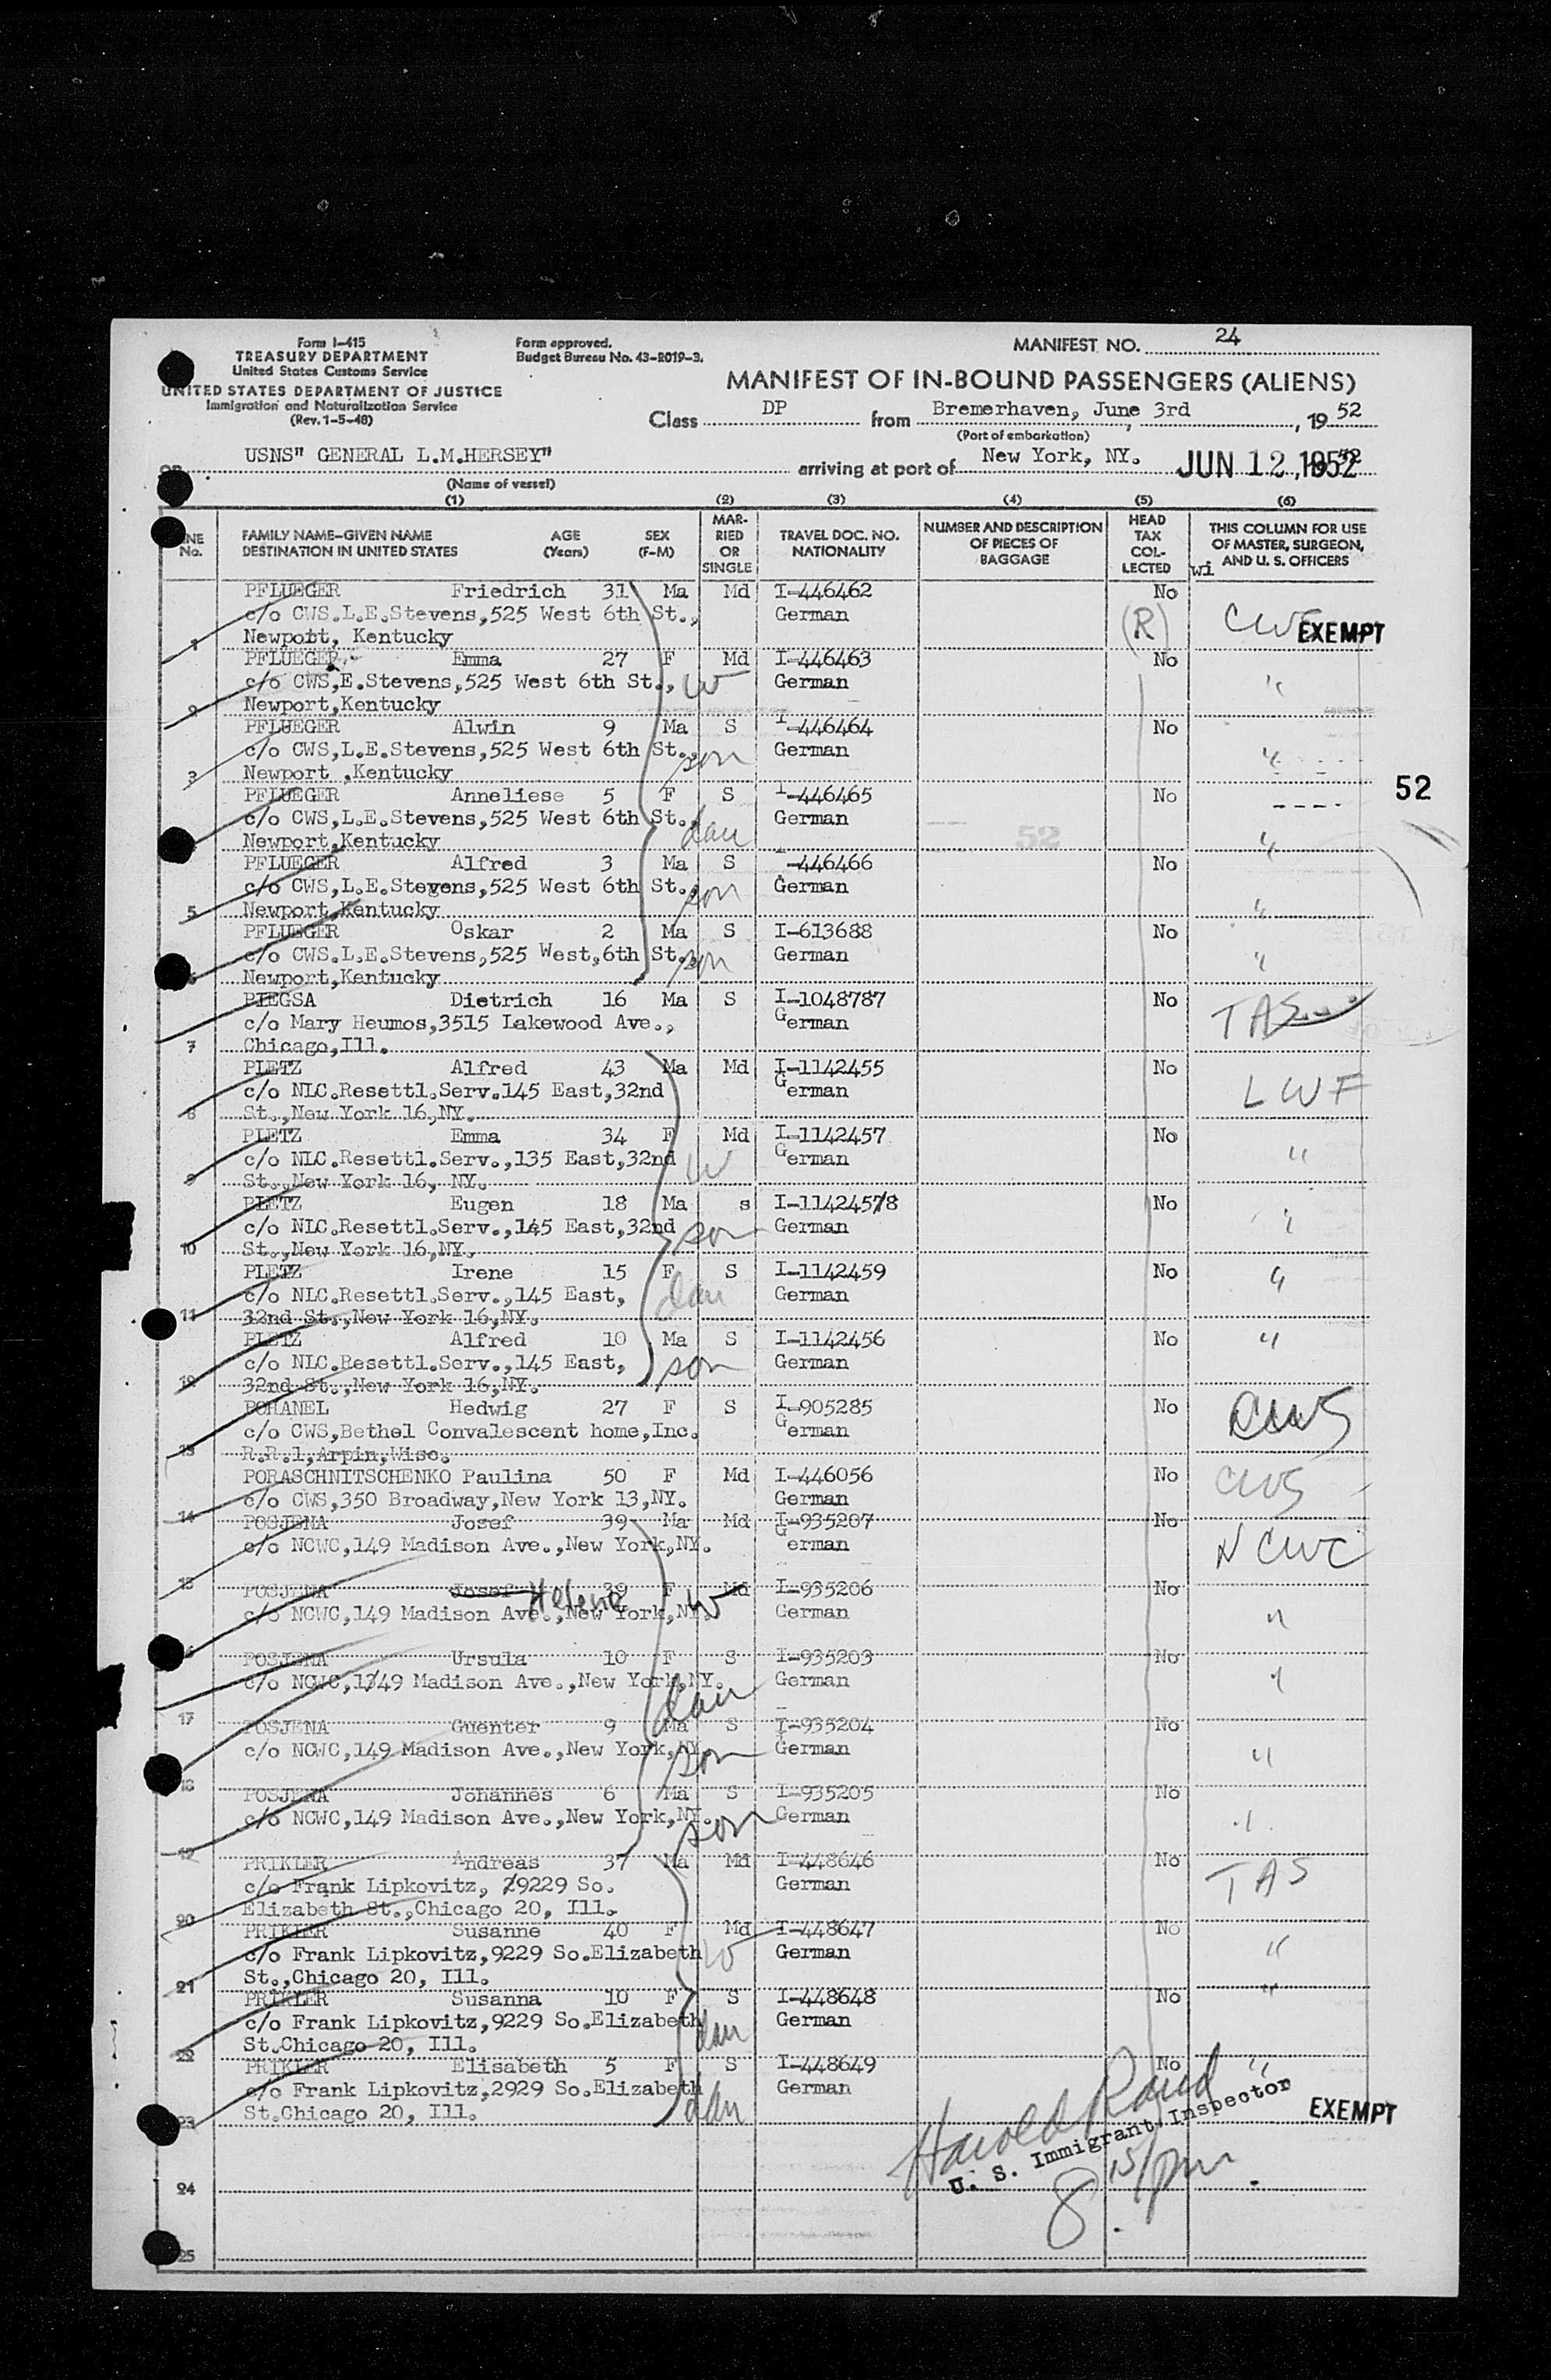 Form I-415
TREASURY DEPARTMENT
United States Customs Service
UNITED STATES DEPARTMENT OF JUSTICE
Immigration and Naturalization Service
(Rev. 1-5-48)
Form approved.
Budget Bureau No. 43-R019-3.
MANIFEST NO. 24
MANIFEST OF IN-BOUND PASSENGERS (ALIENS)
Class DP from Bremerhaven, June 3rd, 1952
(Port of embarkation)
USNS" GENERAL L.M.HERSEY" arriving at port of New York, NY. JUN 12, 1952
(Name of vessel)
(1) (2) (3) (4) (5) (6)
LINE No. FAMILY NAME-GIVEN NAME DESTINATION IN UNITED STATES AGE (Years) SEX (F-M) MARRIED OR SINGLE TRAVEL DOC. NO. NATIONALITY NUMBER AND DESCRIPTION OF PIECES OF BAGGAGE HEAD TAX COLLECTED THIS COLUMN FOR USE OF MASTER, SURGEON, AND U. S. OFFICERS
wi
PFLUEGER Friedrich 31 Ma Md I-446462 No
c/o CWS.L.E.Stevens,525 West 6th St., German (R) CWS EXEMPT
1 Newport, Kentucky
PFLUEGER Emma 27 F Md I-446463 No
c/o CWS,E.Stevens,525 West 6th St., W German "
2 Newport,Kentucky
PFLUEGER Alwin 9 Ma S I-446464 No
c/o CWS,L.E.Stevens,525 West 6th St., son German "
3 Newport ,Kentucky
PFLUEGER Anneliese 5 F S I-446465 No 52
c/o CWS,L.E.Stevens,525 West 6th St., dau German "
Newport,Kentucky
PFLUEGER Alfred 3 Ma S -446466 No
c/o CWS,L.E.Stegens,525 West 6th St., son German "
5 Newport,Kentucky
PFLUEGER Oskar 2 Ma S I-613688 No
c/o CWS.L.E.Stevens,525 West,6th St., son German "
6 Newport,Kentucky
PIEGSA Dietrich 16 Ma S I-1048787 No TAS
c/o Mary Heumos,3515 Lakewood Ave., German
7 Chicago,Ill.
PLETZ Alfred 43 Ma Md I-1142455 No
c/o NLC.Resettl.Serv.145 East,32nd German LWF
8 St.,New York 16,NY.
PLETZ Emma 34 F Md I-1142457 No
c/o NLC.Resettl.Serv.,135 East,32nd W German "
9 St.,New York 16, NY.
PLETZ Eugen 18 Ma s I-1142457/8 No
c/o NLC.Resettl.Serv.,145 East,32nd son German "
10 St.,New York 16,NY.
PLETZ Irene 15 F S I-1142459 No "
c/o NLC.Resettl.Serv.,145 East, dau German
11 32nd St.,New York 16,NY.
PLETZ Alfred 10 Ma S I-1142456 No "
c/o NLC.Resettl.Serv.,145 East, son German
12 32nd St.,New York 16,NY.
PORANEL Hedwig 27 F S I-905285 No CWS
c/o CWS,Bethel Convalescent home,Inc. German
13 R.R.1,Arpin,Wisc.
PORASCHNITSCHENKO Paulina 50 F Md I-446056 No CWS
c/o CWS,350 Broadway,New York 13,NY. German
14 POSJENA Josef 39 Ma Md I-935207 No
c/o NCWC,149 Madison Ave.,New York,NY. German NCWC
15 POSJENA Josef Helene 39 F Md I-935206 No
c/o NCWC,149 Madison Ave.,New York,NY. W German "
POSJENA Ursula 10 F S I-935203 No
c/o NCWC,13/49 Madison Ave.,New York,NY. dau German "
17 POSJENA Guenter 9 Ma S I-935204 No
c/o NCWC,149 Madison Ave.,New York,NY. son German "
18 POSJENA Johannes 6 Ma S I-935205 No
c/o NCWC,149 Madison Ave.,New York,NY. son German "
19 PRIKLER Andreas 37 Ma Md I-448646 No TAS
c/o Frank Lipkovitz, 29229 So. German
20 Elizabeth St.,Chicago 20, Ill.
PRIKLER Susanne 40 F Md I-448647 No
c/o Frank Lipkovitz,9229 So.Elizabeth W German "
21 St.,Chicago 20, Ill.
PRIKLER Susanna 10 F S I-448648 No "
c/o Frank Lipkovitz,9229 So.Elizabeth dau German
22 St.Chicago 20, Ill.
PRIKLER Elisabeth 5 F S I-448649 No "
c/o Frank Lipkovitz,2929 So.Elizabeth dau German
23 St.Chicago 20, Ill. EXEMPT
Harold Rand
U. S. Immigrant Inspector
8 15/pm.
24
25